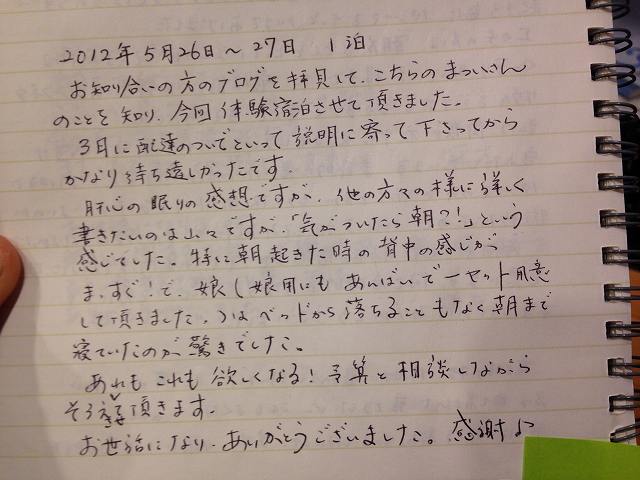 2012年5月26日〜27日 1泊
お知り合いの方のブログを拝見して、こちらのまついさん
のことを知り、今回体験宿泊させて頂きました。
3日に配達のついでといって説明に寄って下さってから
かなり待ち遠しかったです。
肝心の眠りの感想ですが、他の方々の様に詳しく
書きたいのは山々ですが、「気がついたら朝?!」という
感じでした。特に朝起きた時の背中の感じが
まっすぐ!で、娘(娘用にもあんばいで一セット用意
して頂きました。)はベッドから落ちることもなく朝まで
寝ていたのが驚きでした。
あれもこれも欲しくなる!予算と相談しながら
そろえさせて頂きます。
お世話になり、ありがとうございました。感謝♪